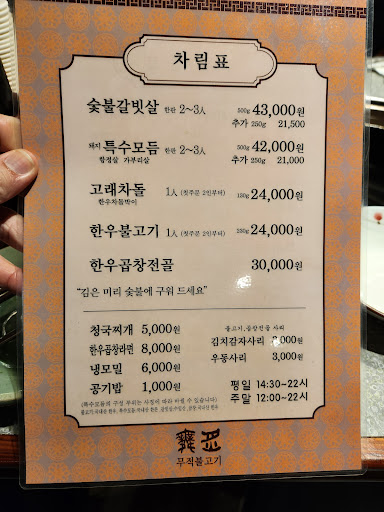 차림표
숯불갈빗살 한판 2~3人 500g 43,000원
추가 250g 21,500
돼지 특수모듬 한판 2~3人 500g 42,000원
항정살 가부리살 추가 250g 21,000
고래차돌 1人 (첫주문 2인부터) 130g 24,000원
한우차돌박이
한우불고기 1人 (첫주문 2인부터) 200g 24,000원
한우곱창전골 30,000원
"김은 미리 숯불에 구워 드세요"
청국찌개 5,000원
한우곱창라면 8,000원
냉모밀 6,000원
공기밥 1,000원
불고기,곱창전골 사리
김치감자사리 ,000원
우동사리 3,000원
평일 14:30~22시
주말 12:00~22시
(특수모듬의 구성 부위는 사정에 따라 바뀔 수 있습니다)
무적불고기